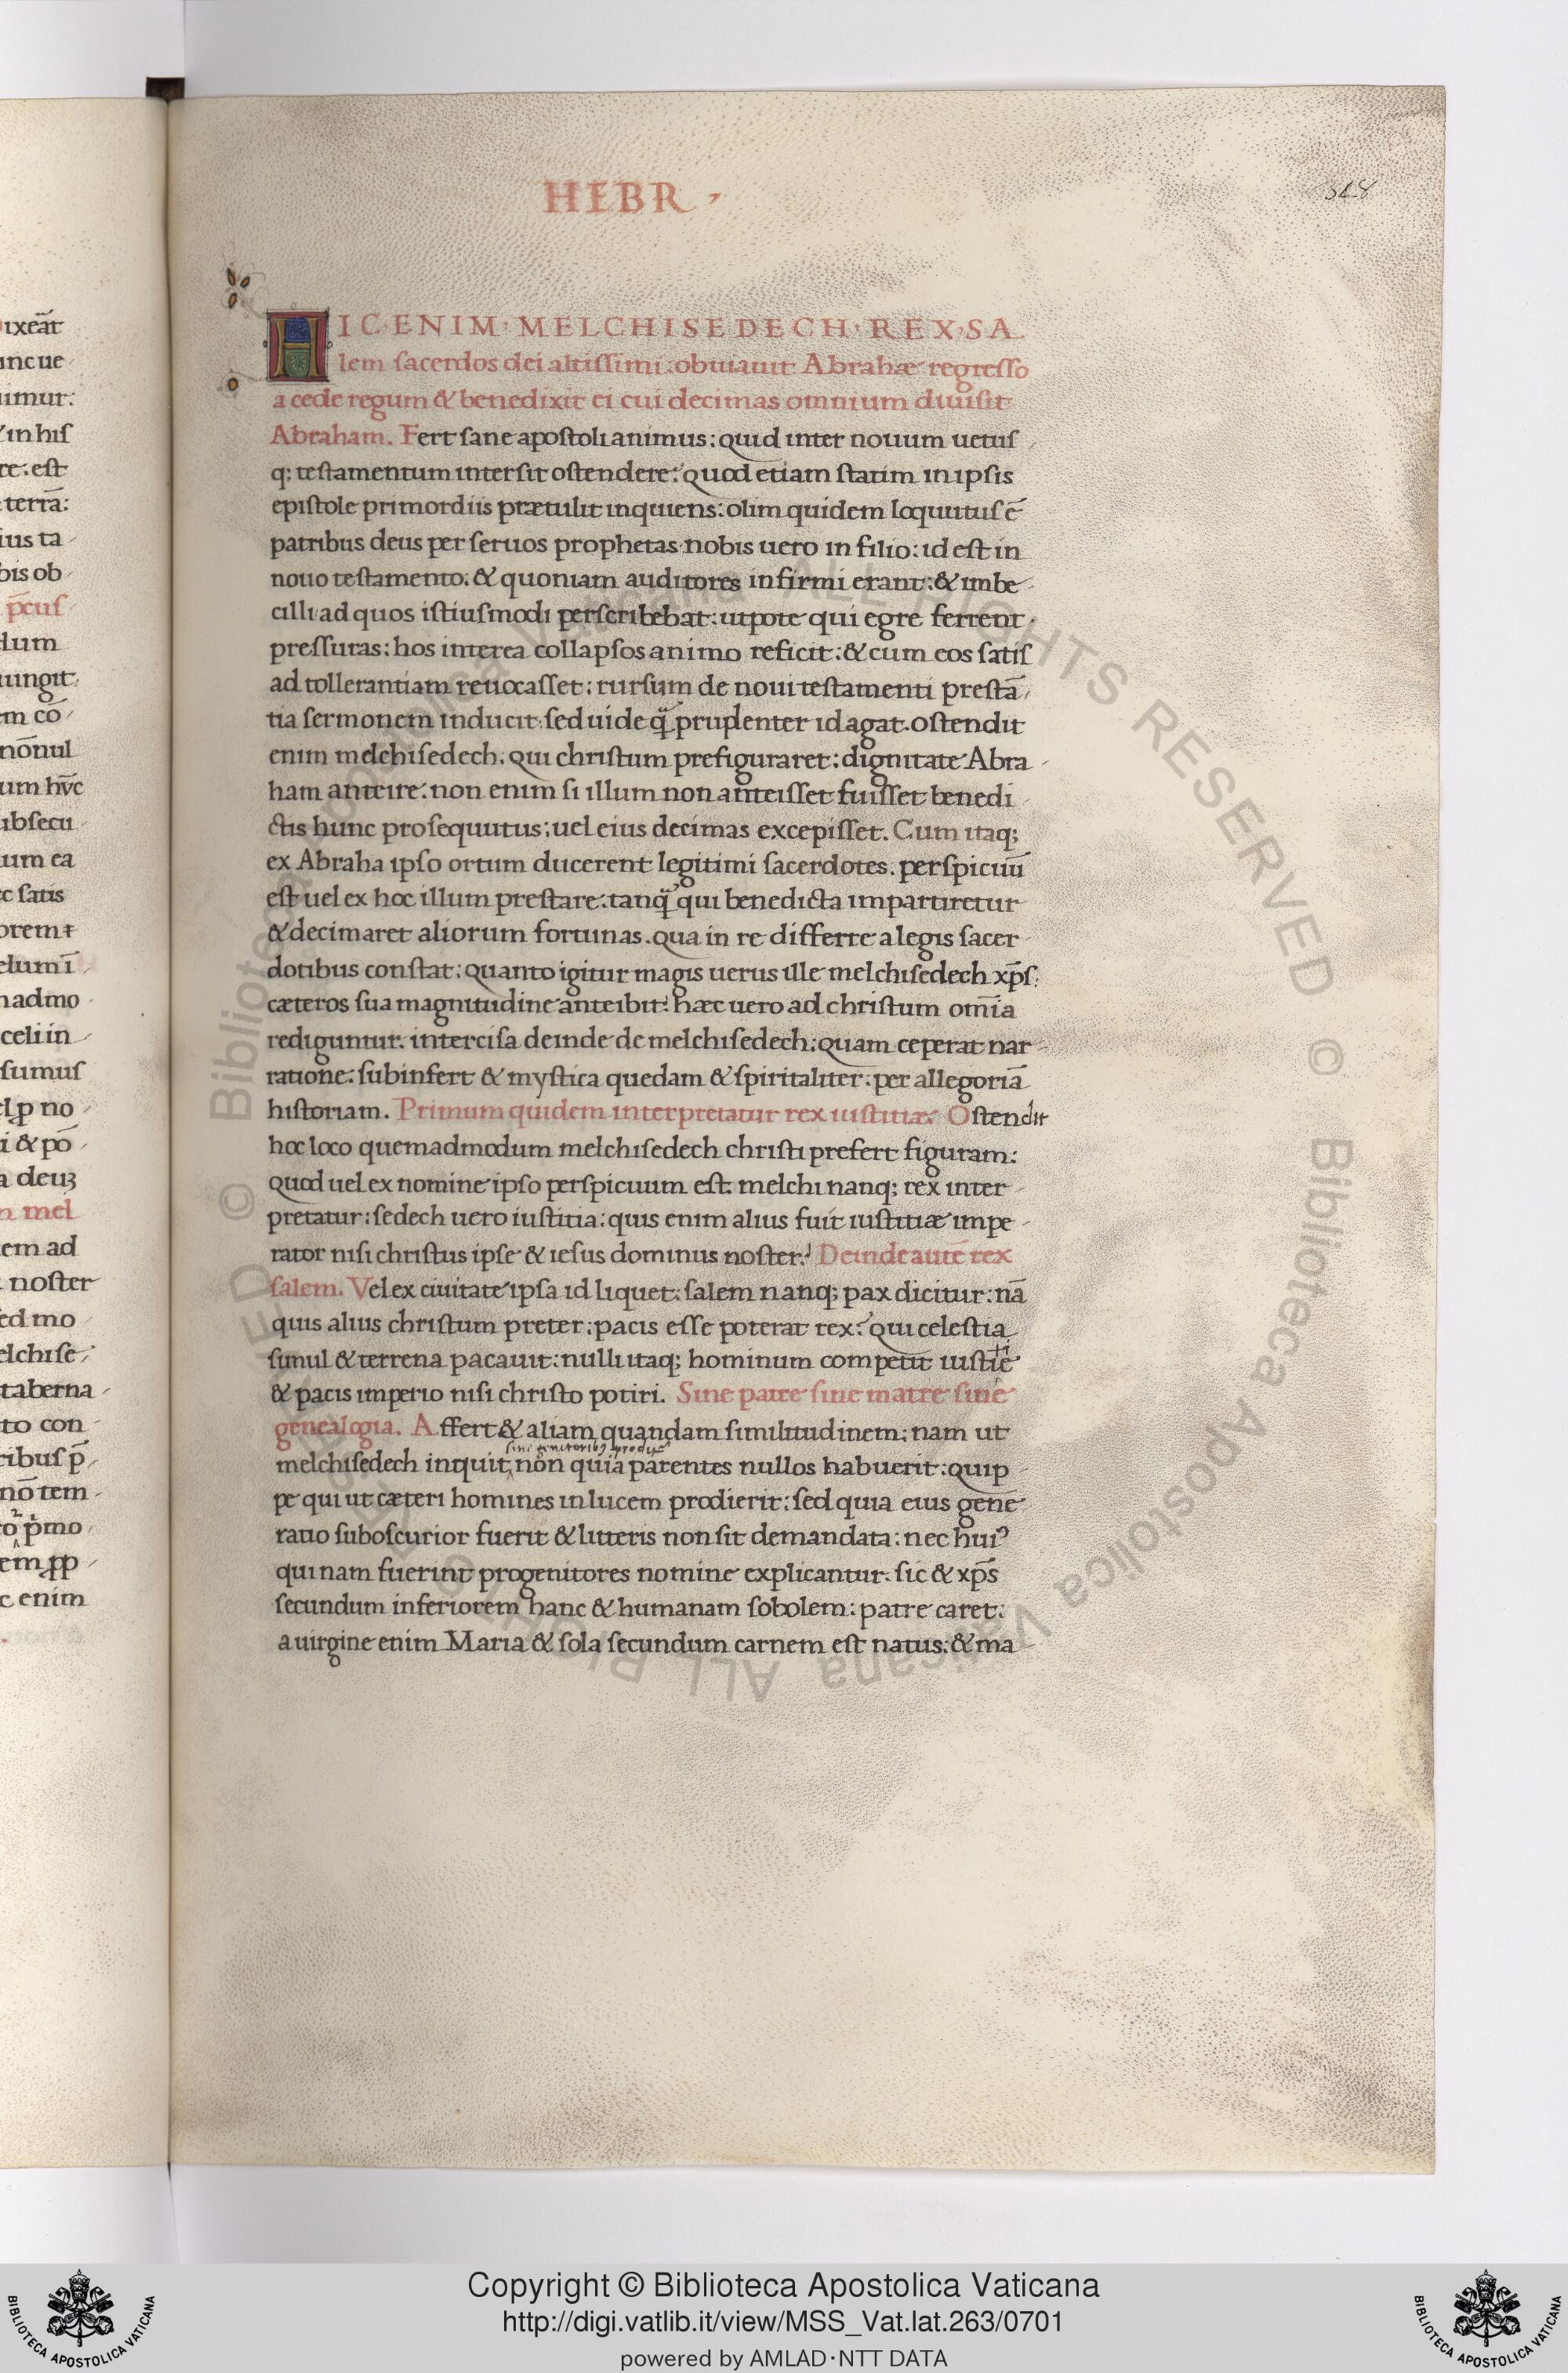 HEBR
348
HIC·ENIM·MELCHISEDECH·REX·SA
lem sacerdos dei altissimi: obuiauit Abrahæ regresso
a cede regum & benedixit ei cui decimas omnium diuisit
Abraham. Fert sane apostoli animus: quid inter nouum uetus
q; testamentum intersit ostendere: quod etiam statim in ipsis
epistole primordiis prætulit inquiens: olim quidem loquutus ē
patribus deus per seruos prophetas nobis uero in filio: id est in
nouo testamento. & quoniam auditores infirmi erant: & imbe
cilli ad quos istiusmodi perscribebat: utpote qui egre ferrent
pressuras: hos interea collapsos animo reficit: & cum eos satis
ad tollerantiam reuocasset: rursum de noui testamenti prestā
tia sermonem inducit: sed uide q̄ prudenter id agat. ostendit
enim melchisedech. qui christum prefiguraret: dignitate Abra
ham anteire: non enim si illum non anteisset fuisset benedi
ctis hunc prosequutus: uel eius decimas excepisset. Cum itaq;
ex Abraha ipso ortum ducerent legitimi sacerdotes. perspicuū
est uel ex hoc illum prestare: tanq̄ qui benedicta impartiretur
& decimaret aliorum fortunas. qua in re differre a legis sacer
dotibus constat: quanto igitur magis uerus ille melchisedech xp̄s:
cæteros sua magnitudine anteibit: hæc uero ad christum om̄ia
rediguntur. intercisa deinde de melchisedech: quam ceperat nar
ratione: subinfert & mystica quedam & spiritaliter: per allegoriā
historiam. Primum quidem interpretatur rex iustitiæ: Ostendit
hoc loco quemadmodum melchisedech christi prefert figuram:
quod uel ex nomine ipso perspicuum est. melchi nanq; rex inter
pretatur: sedech uero iustitia: quis enim alius fuit iustitiæ impe
rator nisi christus ipse & iesus dominus noster. Deinde autē rex
salem. Vel ex ciuitate ipsa id liquet: salem nanq; pax dicitur: nā
quis alius christum preter: pacis esse poterat rex: qui celestia
simul & terrena pacauit: nulli itaq; hominum competit iustitie
& pacis imperio nisi christo potiri. Sine patre sine matre sine
genealogia. Affert & aliam quandam similitudinem: nam ut
melchisedech inquit, non quia parentes nullos habuerit: quip
pe qui ut cæteri homines in lucem prodierit: sed quia eius gene
ratio suboscurior fuerit & litteris non sit demandata: nec huiꝰ
qui nam fuerint progenitores nomine explicantur. sic & xp̄s
secundum inferiorem hanc & humanam sobolem: patre caret:
a uirgine enim Maria & sola secundum carnem est natus: & ma
Copyright © Biblioteca Apostolica Vaticana
http://digi.vatlib.it/view/MSS_Vat.lat.263/0701
powered by AMLAD·NTT DATA